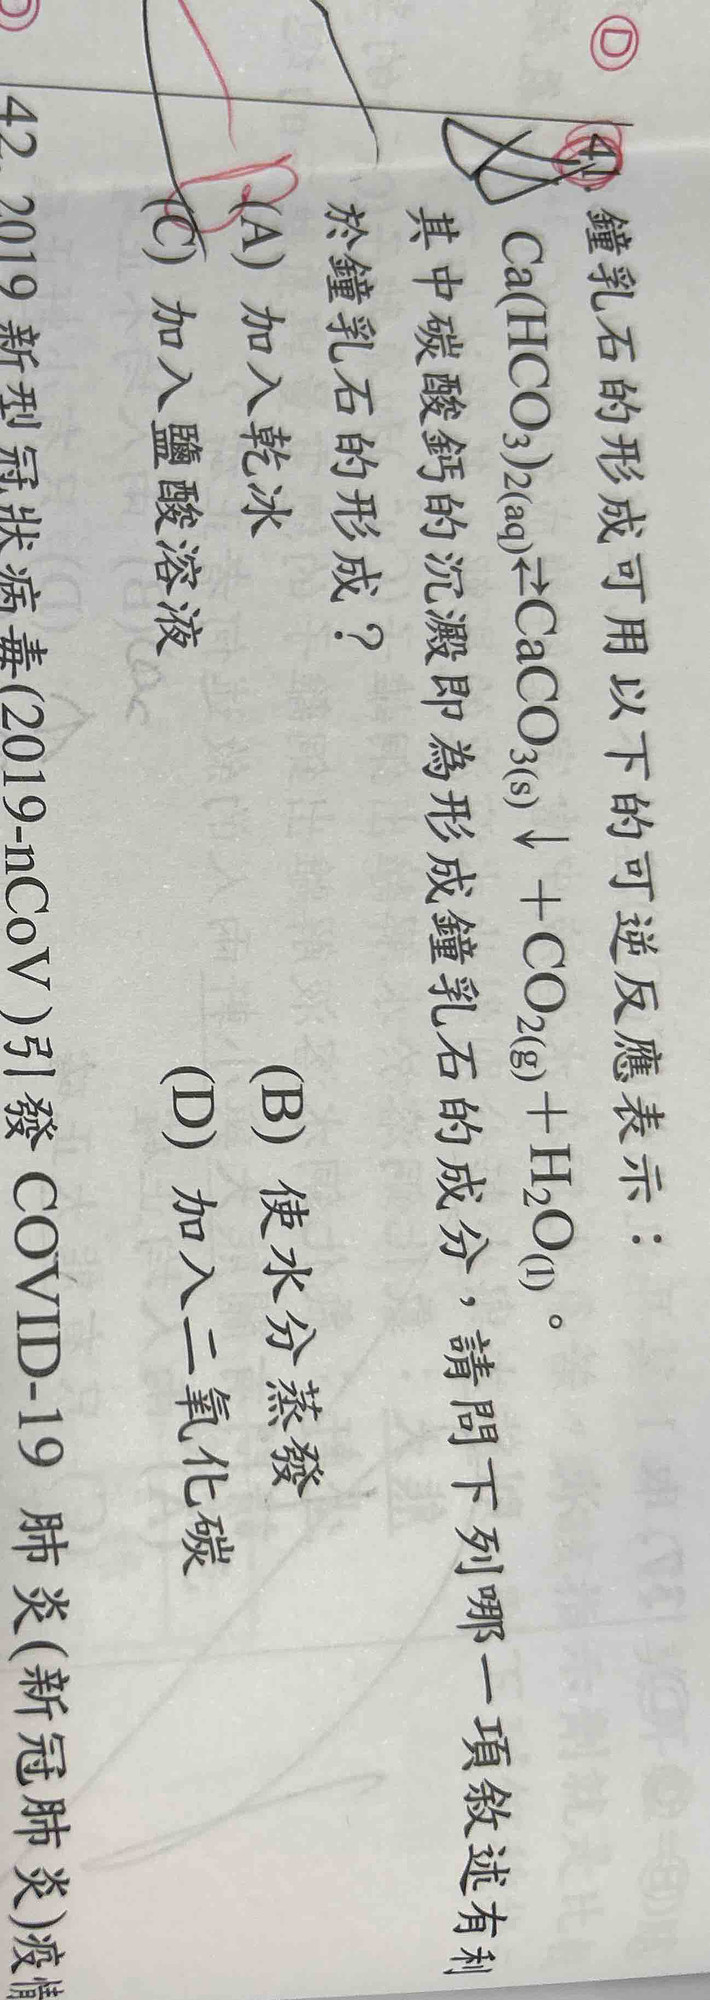 D
41. 鐘乳石的形成可用以下的可逆反應表示：
Ca(HCO₃)₂(aq)⇄CaCO₃(s)↓＋CO₂(g)＋H₂O(l)。
其中碳酸鈣的沉澱即為形成鐘乳石的成分，請問下列哪一項敘述有利
於鐘乳石的形成？
(A) 加入乾冰 (B) 使水分蒸發
(C) 加入鹽酸溶液 (D) 加入二氧化碳
42. 2019 新型冠狀病毒(2019-nCoV)引發 COVID-19 肺炎(新冠肺炎)疫情